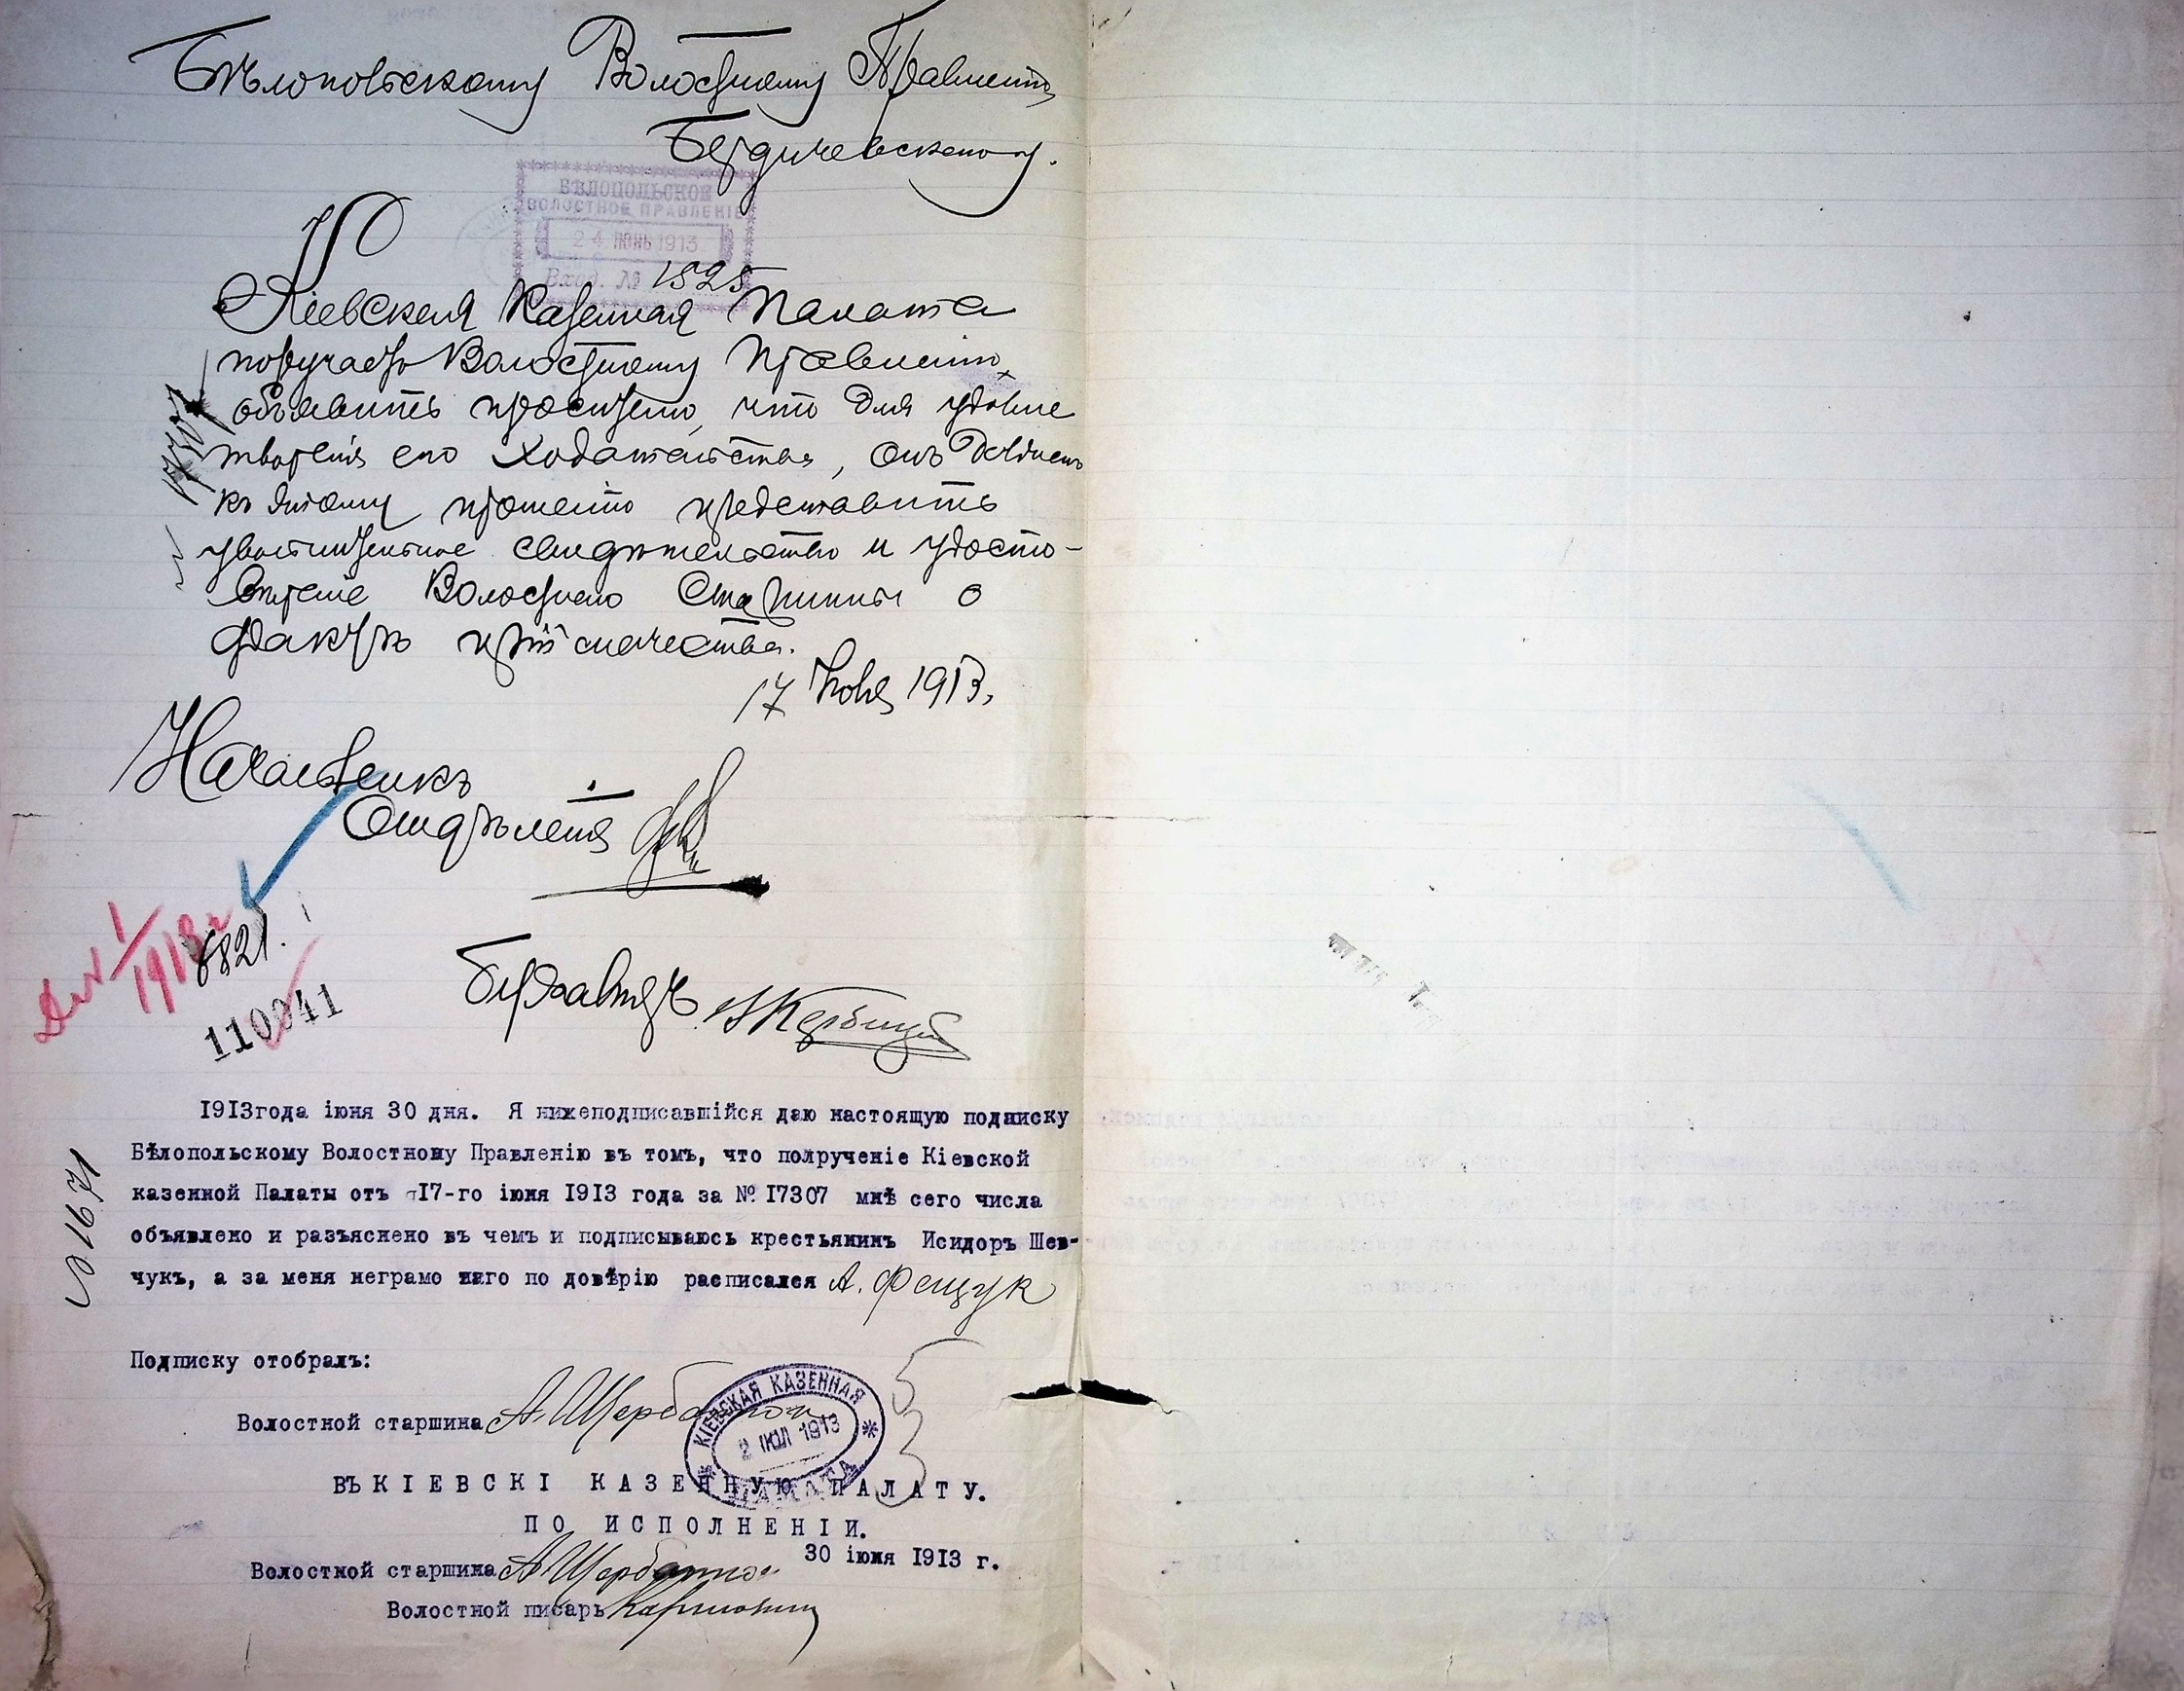 Бѣлопольскому Волостному Правленію
Бердичевскому.
БѢЛОПОЛЬСКОЕ
ВОЛОСТНОЕ ПРАВЛЕНІЕ
24 ІЮНЬ 1913
Вход. № 1525
Кіевская Казенная Палата
поручаетъ Волостному Правленію
объявить просителю, что для удовле
творенія его ходатайства, онъ долженъ
къ этому прошенію представить
увольнительное свидѣтельство и удосто-
вѣреніе Волостного Старшины о
фактѣ
17 Іюня 1913,
17307
Начальникъ
Отдѣленія
1/1913
8821.
110041
Бухгалтеръ
1913года іюня 30 дня. Я нижеподписавшійся даю настоящую подписку
Бѣлопольскому Волостному Правленію въ томъ, что порученіе Кіевской
казенной Палаты отъ 17-го іюня 1913 года за № 17307 мнѣ сего числа
объявлено и разъяснено въ чемъ и подписываюсь крестьянинъ Исидоръ Шев-
чукъ, а за меня неграмо наго по довѣрію расписался А. Фещук
№ 1671
Подписку отобралъ:
Волостной старшина А. Щербатюк
КІЕВСКАЯ КАЗЕННАЯ ПАЛАТА
2 ІЮЛ 1913
ВЪ КІЕВСКІ КАЗЕННУЮ ПАЛАТУ.
ПО ИСПОЛНЕНІИ.
30 іюня 1913 г.
Волостной старшина А Щербатюк
Волостной писарь